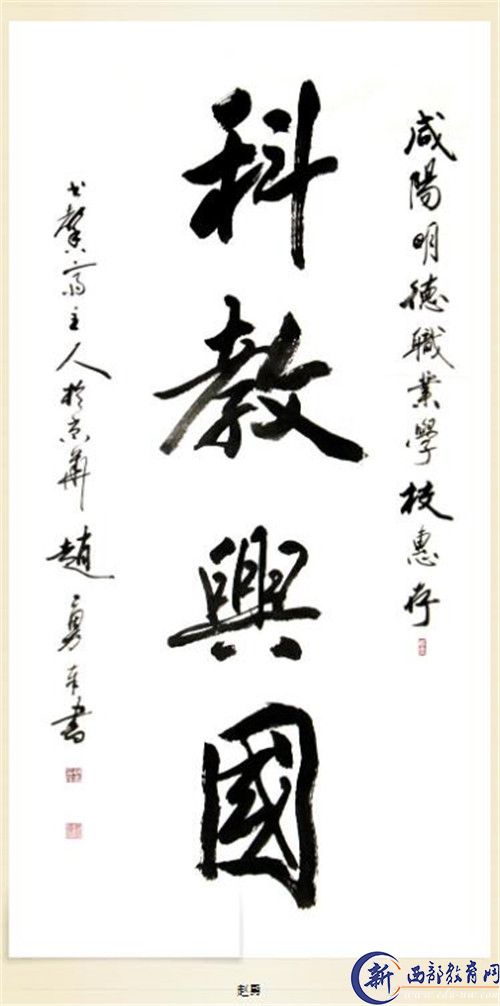 咸陽明德職業學校惠存
科教興國
書馨齋主人於京華趙勇奉書
赵勇
新西部教育网